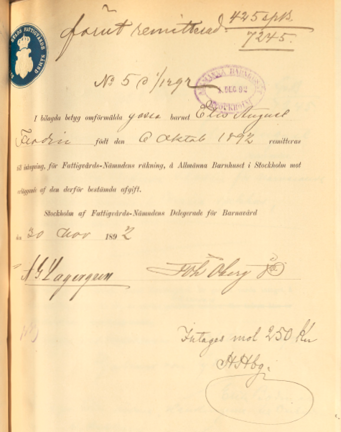 förut remitterad 425 sp.
7245.
No 5
ALLMÄNNA BARNHUSET
DEC. 92
STOCKHOLM
I bilagda betyg omförmälda gossebarnet August
född den 6 Oktob 1892 remitteras
till intagning, för Fattigvårds-Nämndens räkning, å Allmänna Barnhuset i Stockholm mot
erläggande af den derför bestämda afgift.
Stockholm af Fattigvårds-Nämndens Delegerade för Barnavård
den 30 Nov 1892
Lagergren Öberg
Intages mot 250 Kr